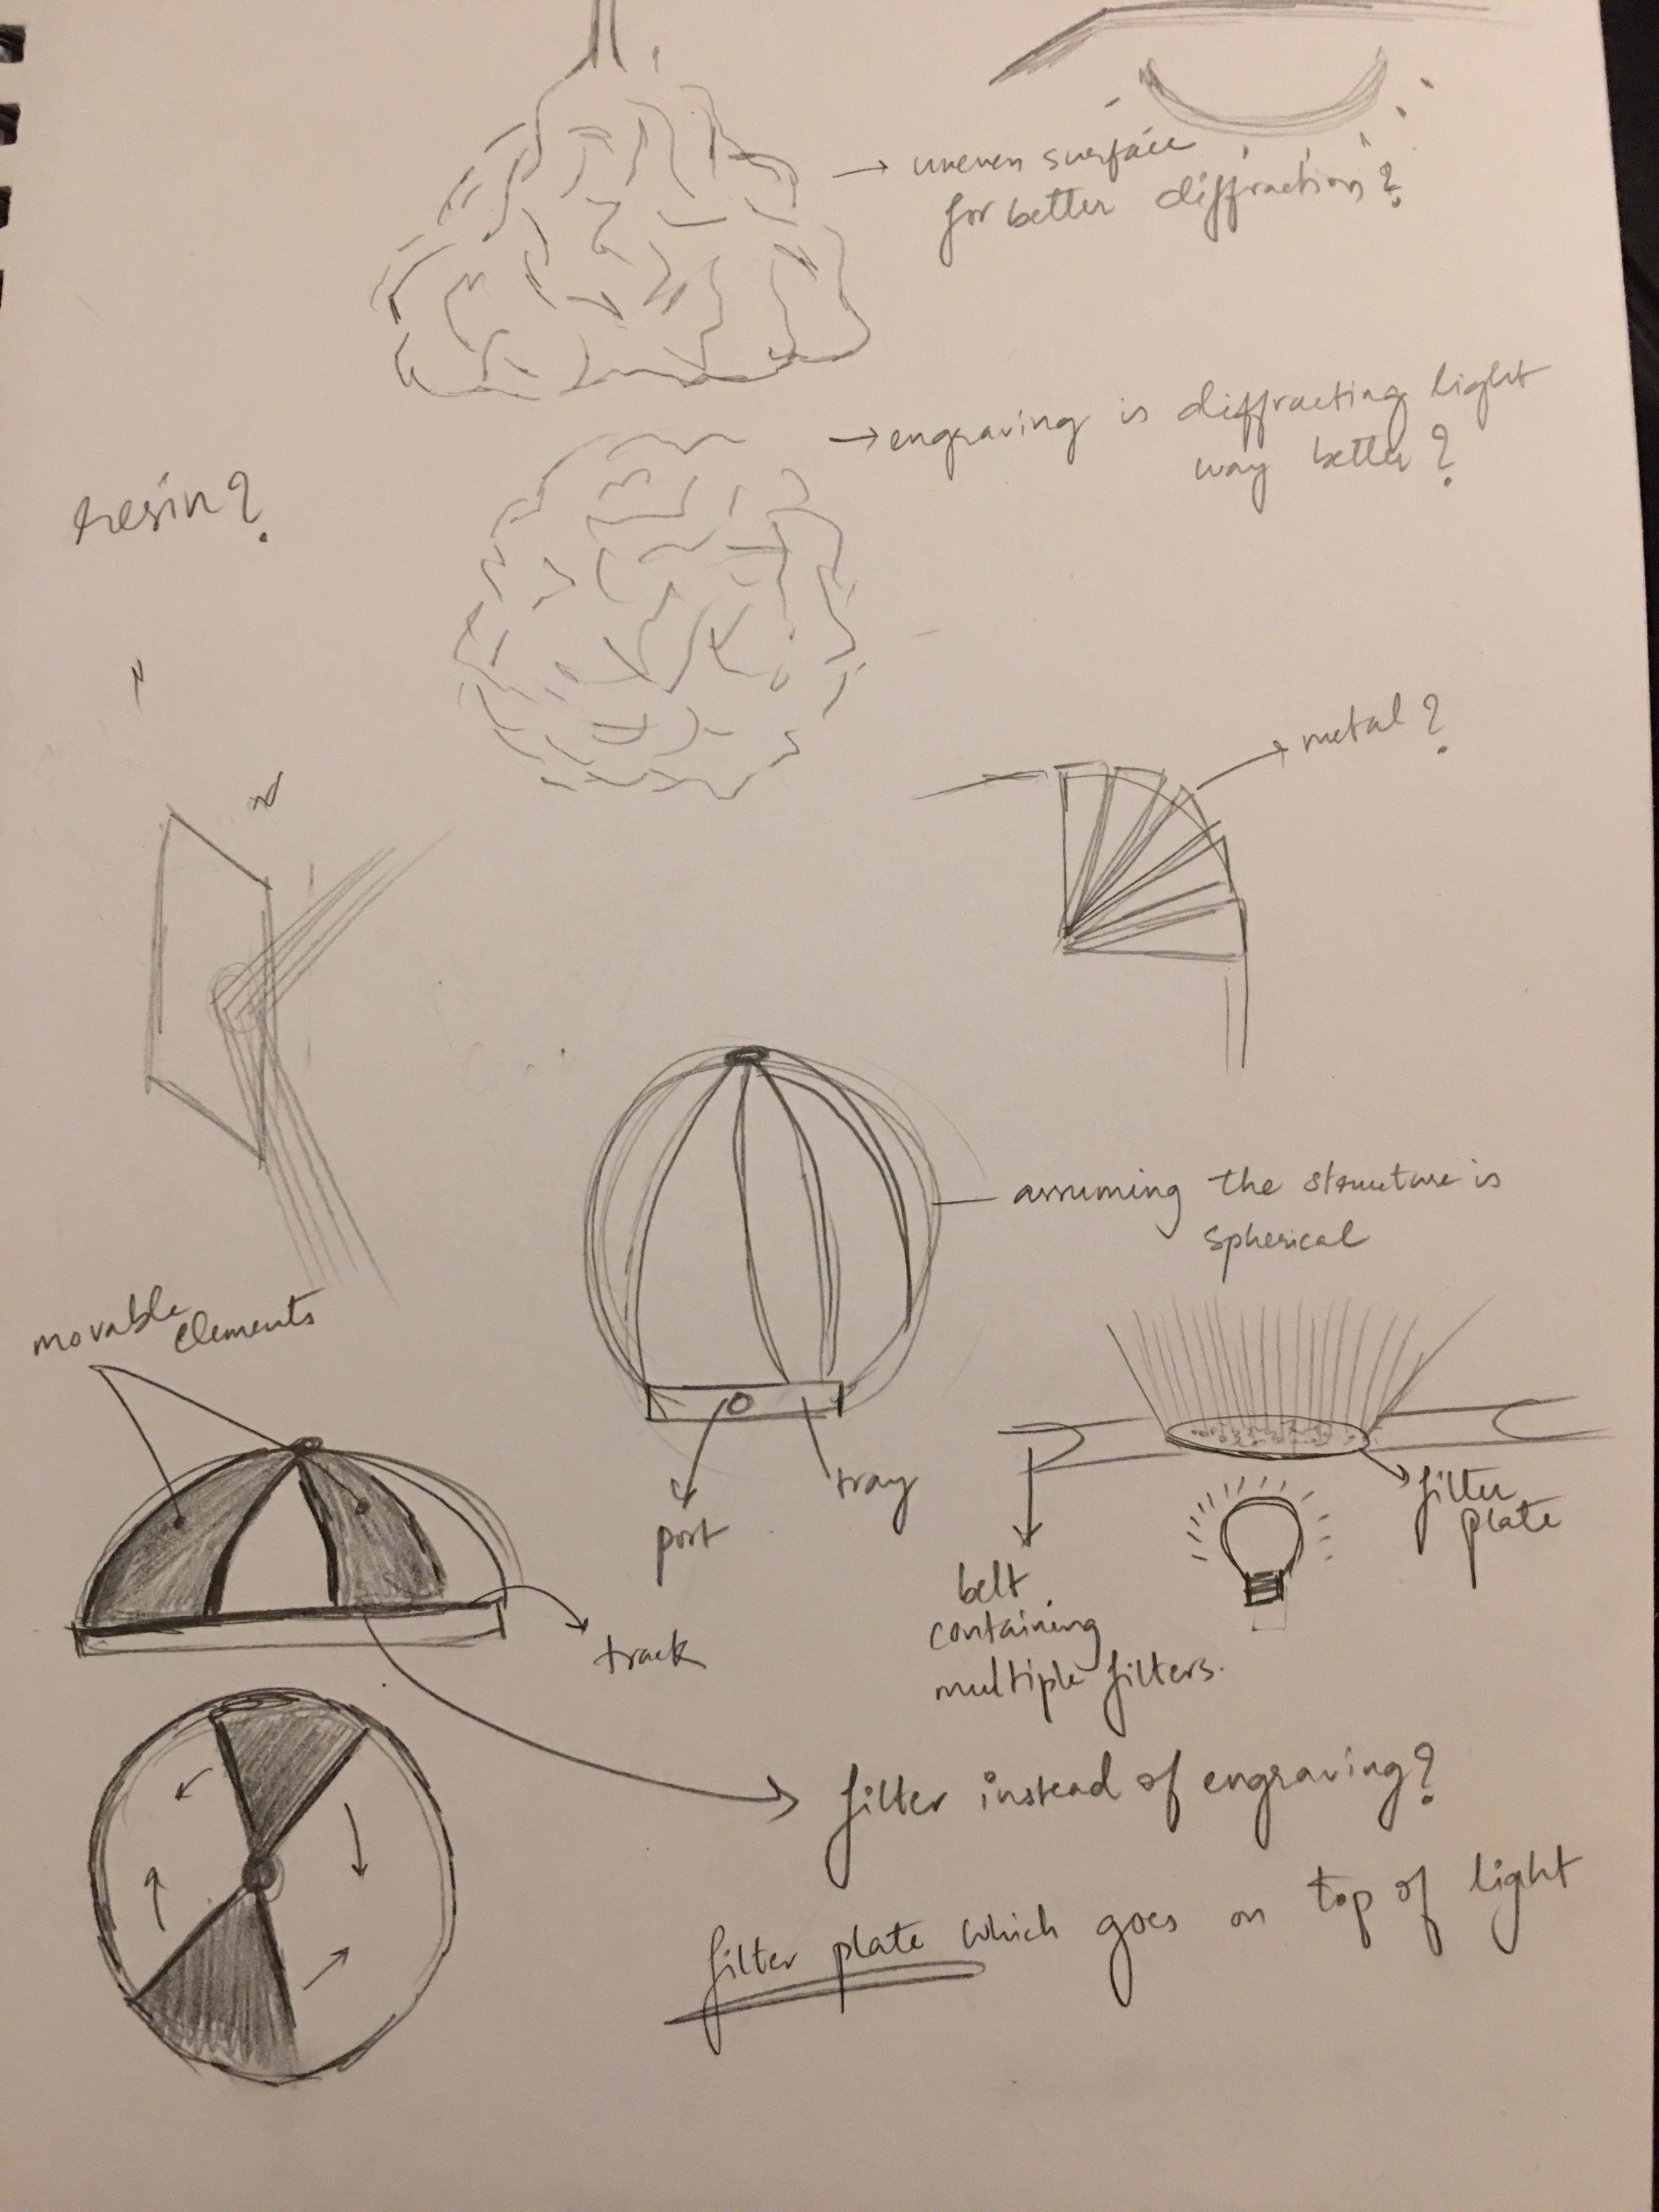 uneven surface
for better diffraction?
engraving is diffracting light
way better?
resin?
metal?
assuming the structure is
spherical
movable
elements
port
tray
filter
plate
belt
containing
multiple filters.
track
filter instead of engraving?
filter plate which goes on top of light